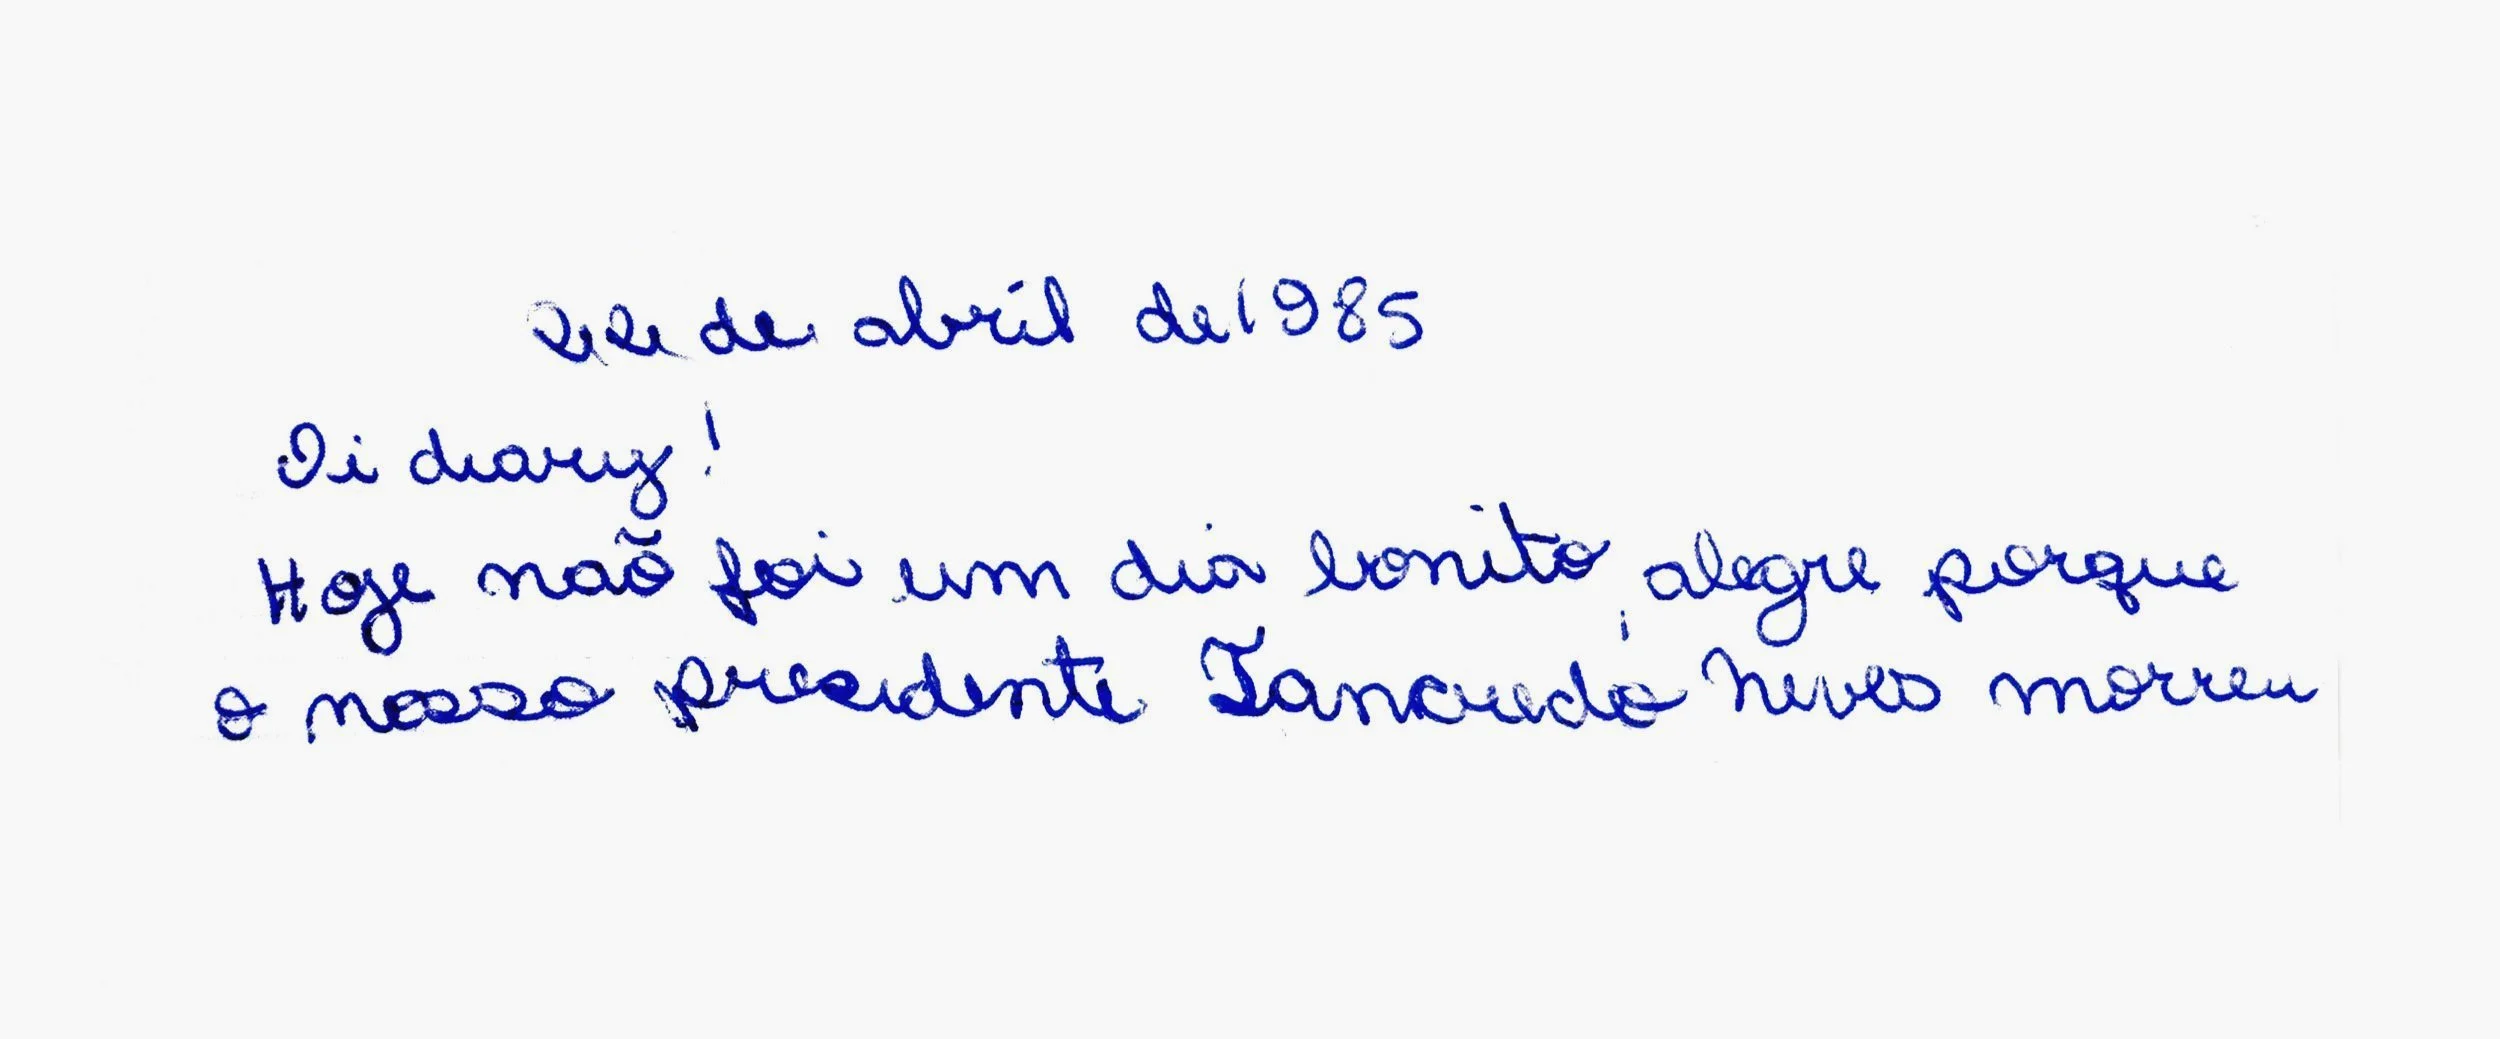 22 de abril de 1985
Oi diary!
Hoje não foi um dia bonito, alegre porque
o nosso presidente Tancredo Neves morreu